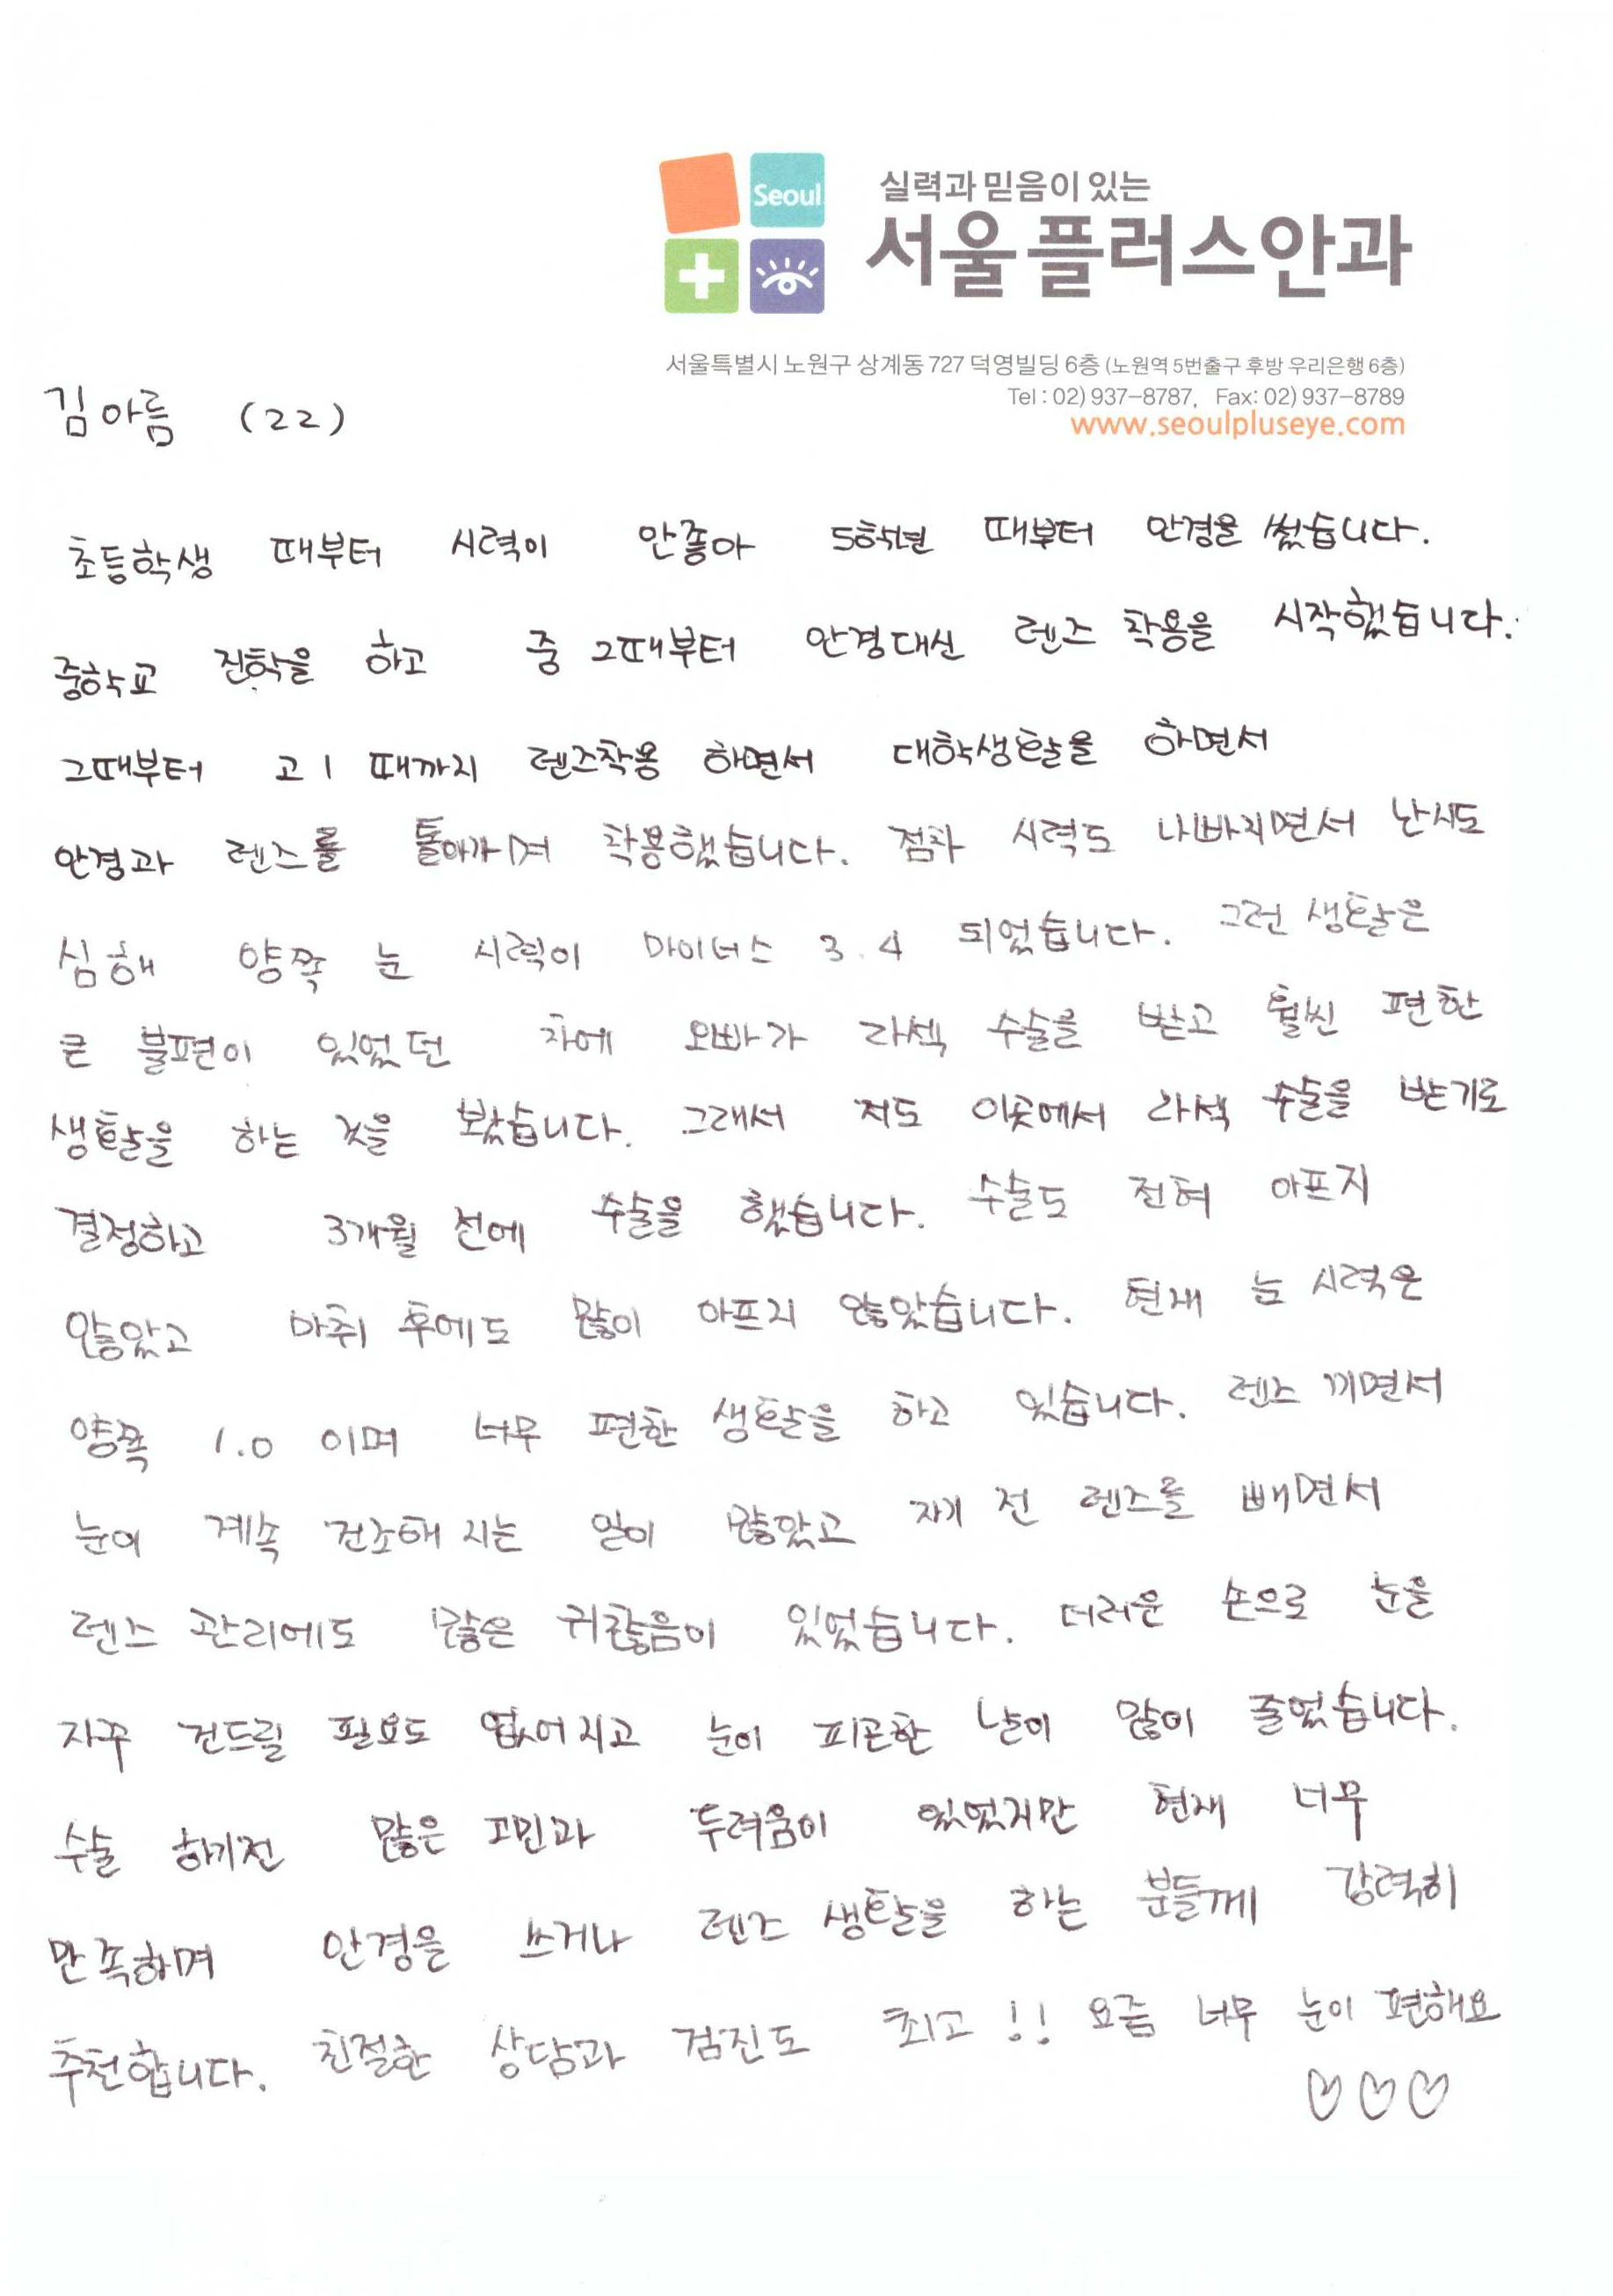 Seoul
실력과 믿음이 있는
서울플러스안과
서울특별시 노원구 상계동 727 덕영빌딩 6층 (노원역 5번출구 후방 우리은행 6층)
Tel : 02) 937-8787, Fax: 02) 937-8789
www.seoulpluseye.com
김아름 (22)
초등학생 때부터 시력이 안좋아 5학년 때부터 안경을 썼습니다.
중학교 진학을 하고 중 2때부터 안경대신 렌즈 착용을 시작했습니다.
그때부터 고1 때까지 렌즈착용 하면서 대학생활을 하면서
안경과 렌즈를 돌아가며 착용했습니다. 점차 시력도 나빠지면서 난시도
심해 양쪽 눈 시력이 마이너스 3.4 되었습니다. 그런 생활은
큰 불편이 있었던 차에 오빠가 라섹 수술을 받고 훨씬 편한
생활을 하는 것을 봤습니다. 그래서 저도 이곳에서 라섹 수술을 받기로
결정하고 3개월 전에 수술을 했습니다. 수술도 전혀 아프지
않았고 마취 후에도 많이 아프지 않았습니다. 현재 눈 시력은
양쪽 1.0 이며 너무 편한 생활을 하고 있습니다. 렌즈 끼면서
눈이 계속 건조해 지는 일이 많았고 자기 전 렌즈를 빼면서
렌즈 관리에도 많은 귀찮음이 있었습니다. 더러운 손으로 눈을
자꾸 건드릴 필요도 없어지고 눈이 피곤한 날이 많이 줄었습니다.
수술 하기전 많은 고민과 두려움이 있었지만 현재 너무
만족하며 안경을 쓰거나 렌즈 생활을 하는 분들께 강력히
추천합니다. 친절한 상담과 검진도 최고!! 요즘 너무 눈이 편해요
♡♡♡